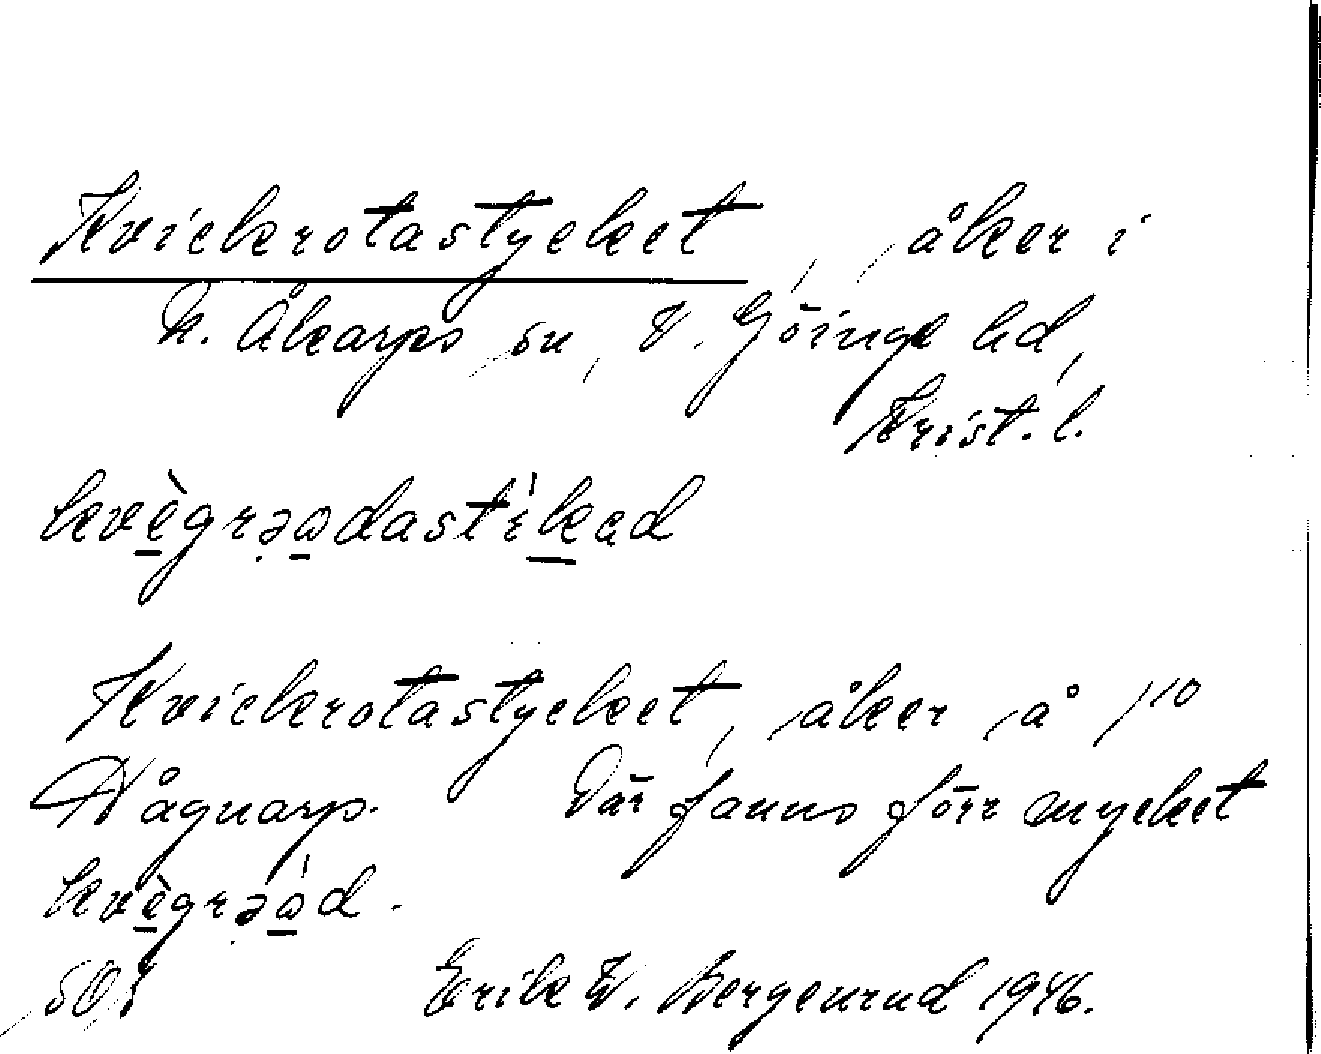 Kvickrotastycket, åker i
N. Åkarps sn, V. Göinge hd,
Krist. l.
kvègrəɷdastìkəd
Kvickrotastycket, åker å 1/10
Hågnarp. Där fanns förr mycket
kvègrəɷd.
Erik W. Bergenrud 1946.